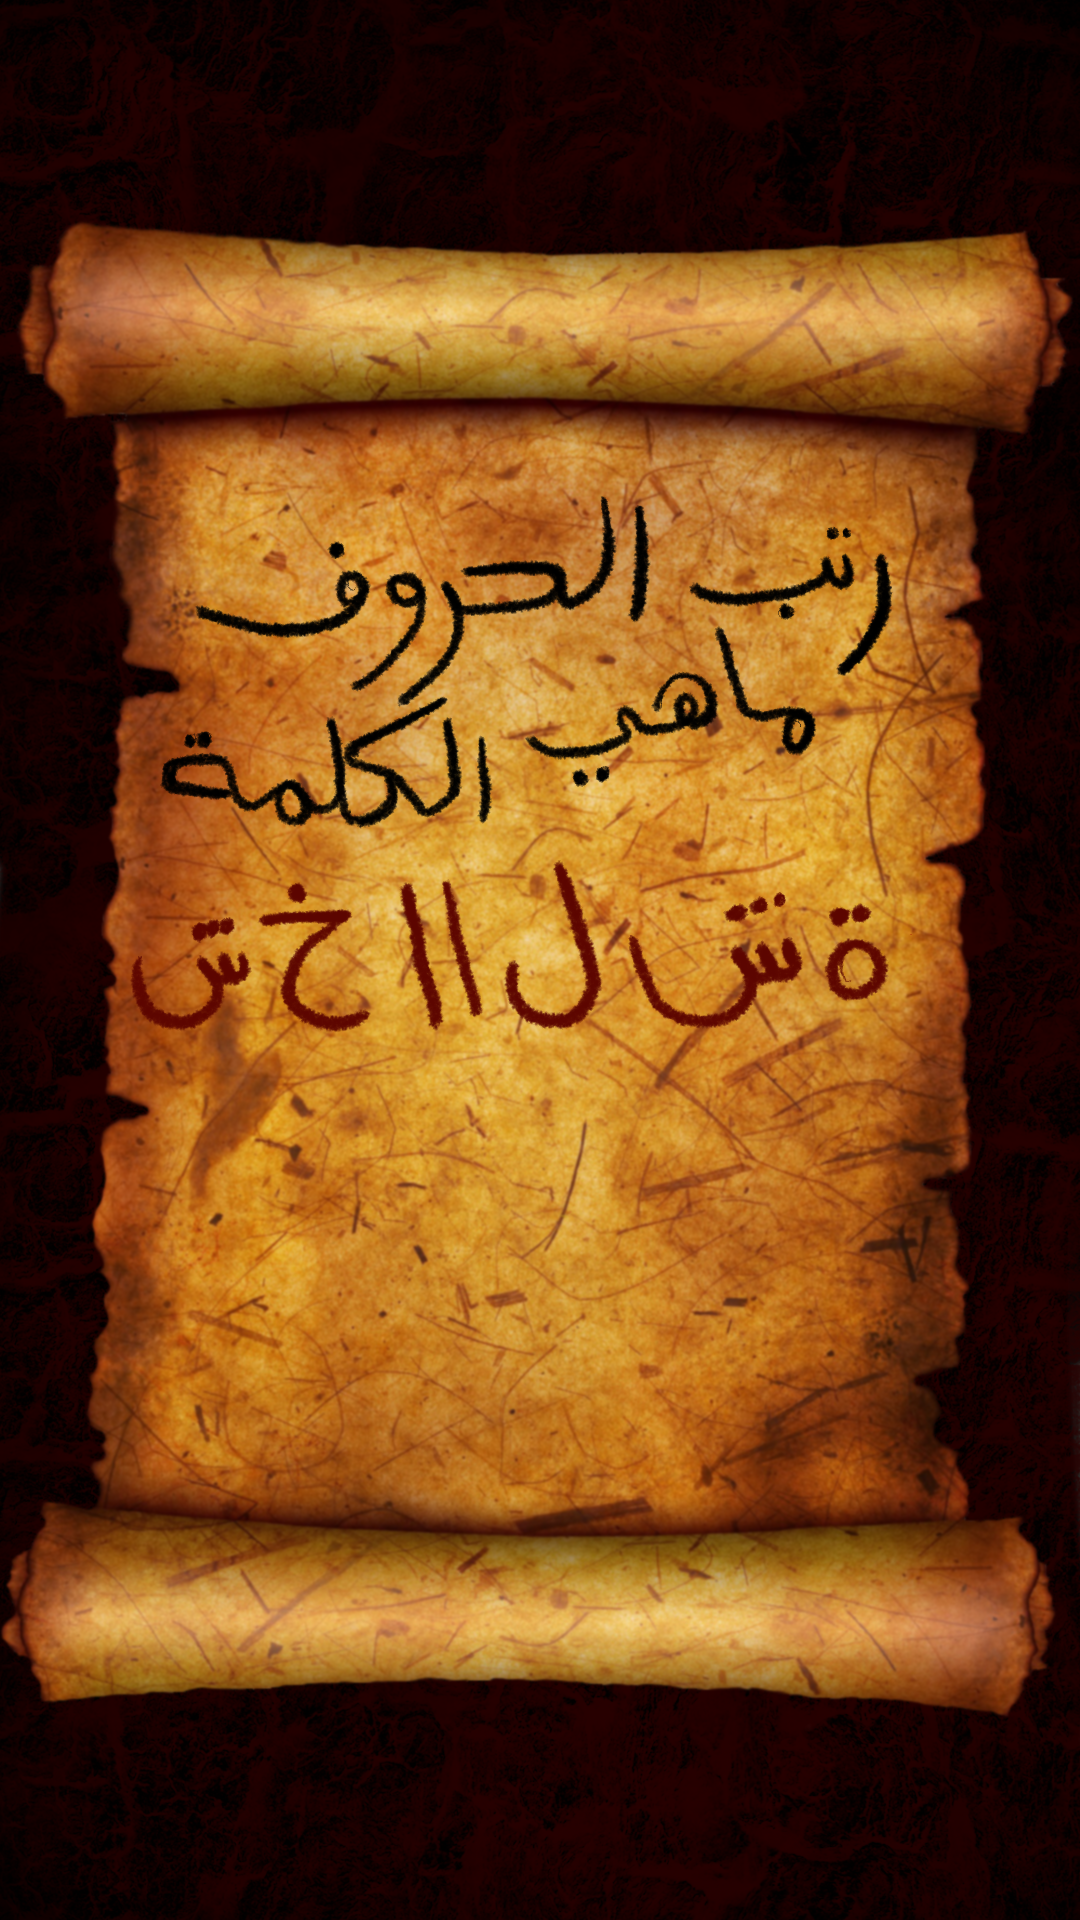 رتب الحروف
ماهي الكلمة
ة ش ل ا ا خ ش